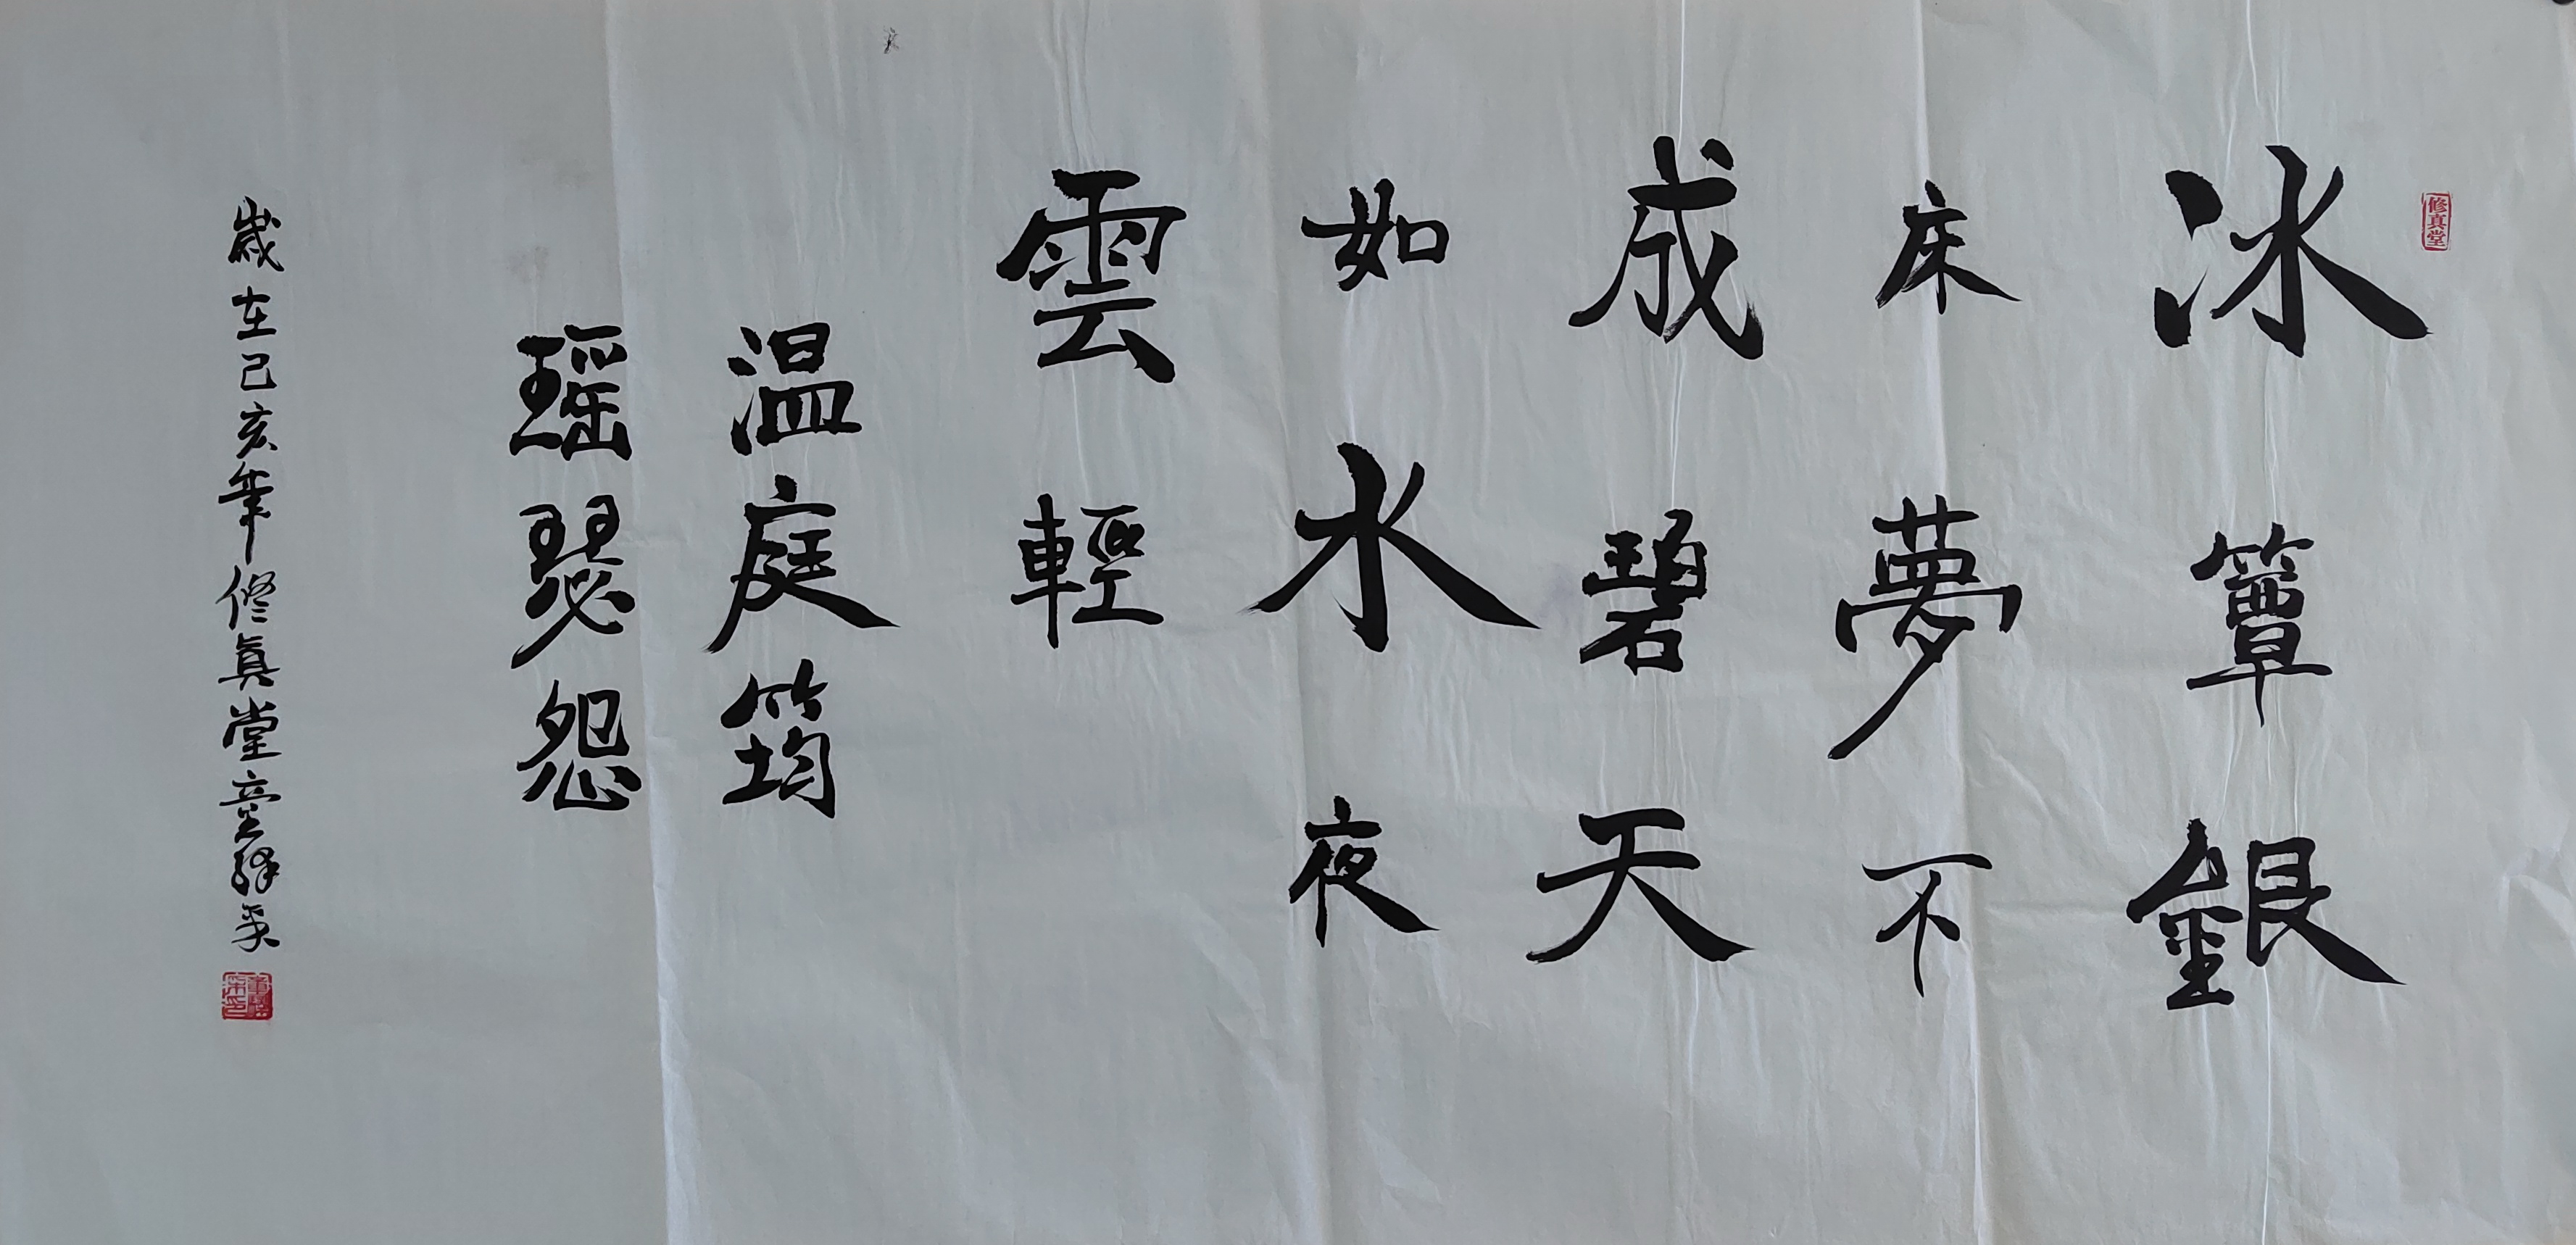 修真堂
冰簟銀
床夢不
成碧天
如水夜
雲輕
温庭筠
瑶瑟怨
歲在己亥年修真堂童繹采